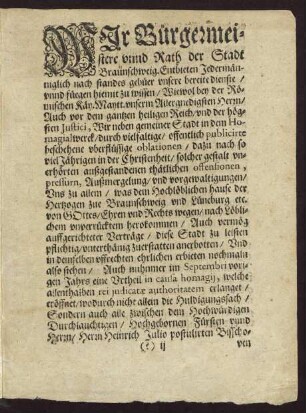 WIr Bürgermei-
stere vnnd Rath der Stadt
Braunschweig. Entbieten Jedermän-
niglich nach standes gebür vnsere bereite dienste /
vnnd fügen hiemit zu wissen / Wiewol bey der Rö-
mischen Käy. Maytt. vnserm Allergnedigsten Herrn /
Auch vor dem gantzen heiligen Reich / vnd der höch-
sten Justici / Wir neben gemeiner Stadt in dem Ho-
magialwerck / durch vielfaltige / offentlich publicirte
beschehene vberflüssige oblationen / dazu nach so
viel Jährigen in der Christenheit / solcher gestalt vn-
erhörten außgestandenen thätlichen offensionen,
pressurn, Außmergelung / vnd vorgewaltigungen /
Vns zu allem / was dem Hochlöblichen hause der
Hertzogen zu Braunschweig vnd Lüneburg etc.
von Gottes / Ehren vnd Rechts wegen / nach Löbli-
chem vnverrücktem herokommen / Auch vermög
auffgerichteter Verträge / diese Stadt zu leisten
pflichtig / vnterthänig zuerstatten anerbotten / Vnd
in demselben offrechten ehrlichen erbieten nochmaln
also stehen / Auch nuhnmer im Septembri vori-
gen Jahrs eine Vrtheil in causa homagij, welche
allenthalben rei judicatæ authoritatem erlanget /
eröffnet / wodurch nicht allein die Huldigungssach /
Sondern auch alle zwischen dem Hochwürdigen
Durchlauchtigen / Hochgebornen Fürsten vnnd
Herrn / Herrn Heinrich Julio postulirten Bischo-
(:) ij
ven